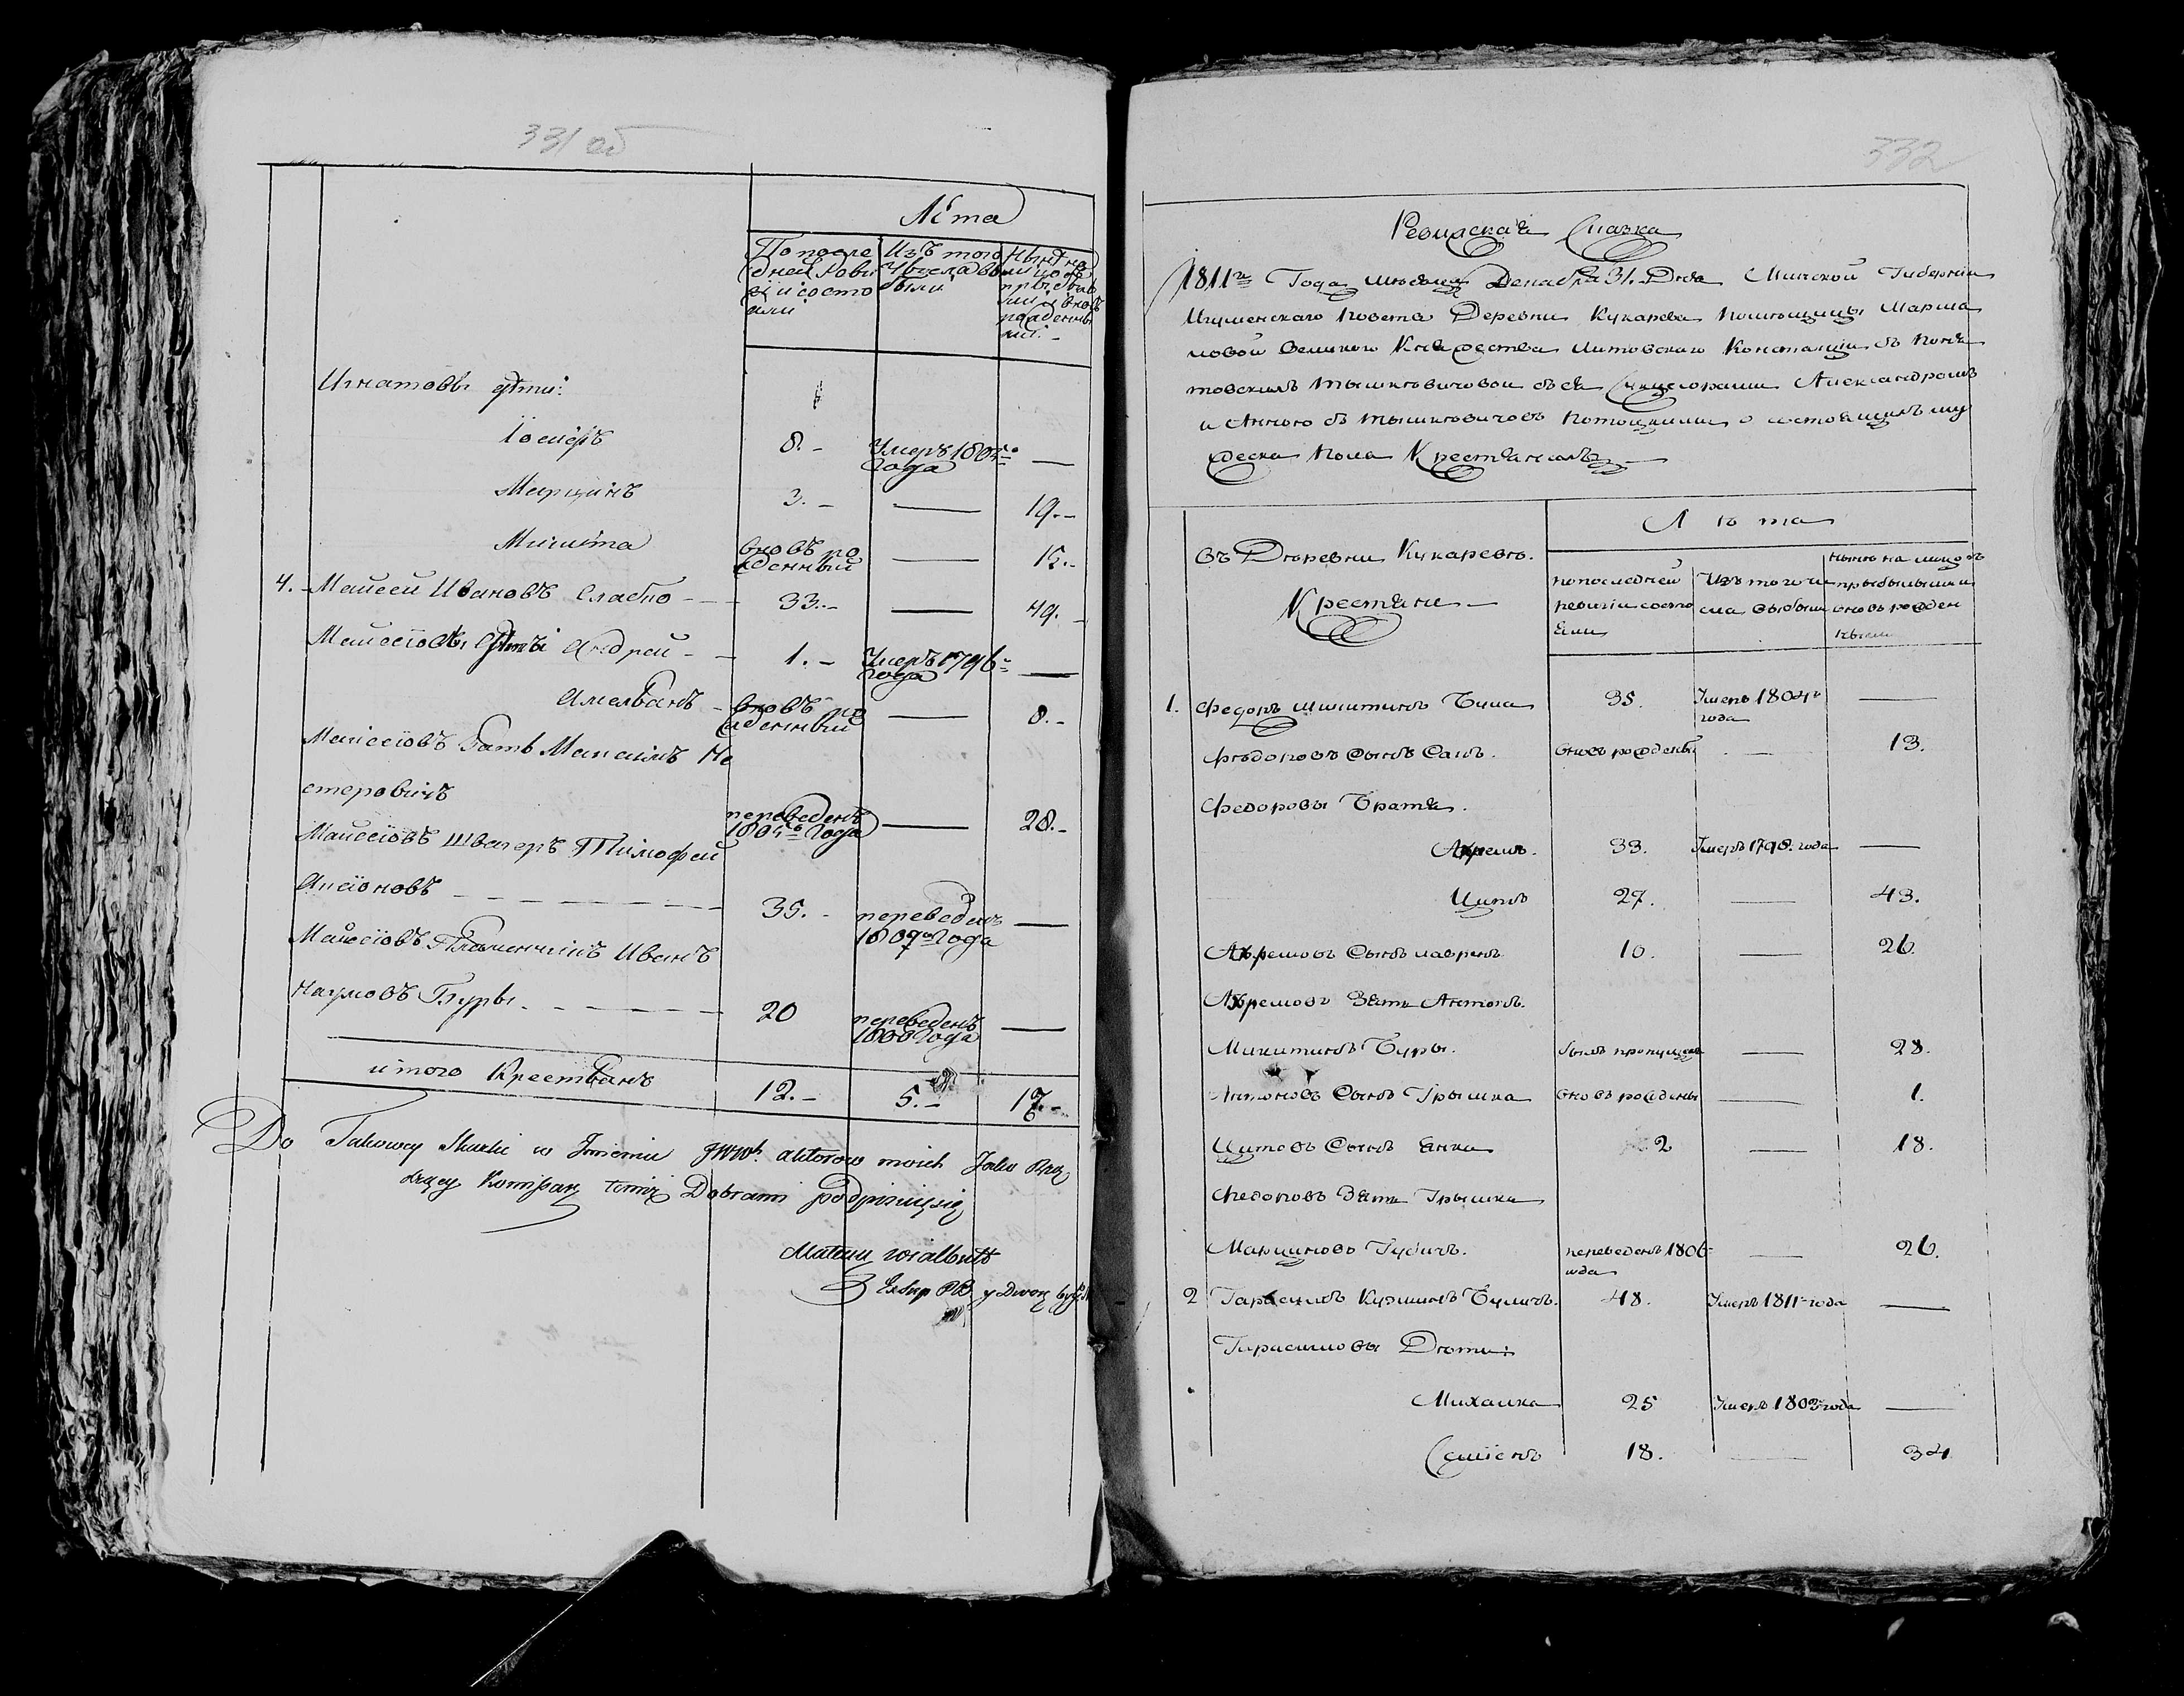 331 об
Лѣта
По после Изъ того Нынѣ на
дней Реви числа вы лицо съ
зіи состо были прибыв
яли шими и вновь
рожденны
ми
Игнатовы дѣти:
Іосифъ 8. - Умеръ 180 года —
Марцинъ 3. - — 19. -
Микита вновь рожденный — 15. -
4. - Мойсей Ивановъ Слабко - - 33. - — 49. -
Мойсеiовы дѣти Андрей - - 1. - Умеръ 1796 года —
Амельянъ - вновь рожденный — 8. -
Мойсеiовъ Зять Максимъ Не
стеровичъ переведенъ 180 года — 28. -
Мойсеiовъ Швагеръ Тимофей
Аксіоновъ - - - 35. - переведенъ 1807 года —
Мойсеiовъ Племенникъ Иванъ
Наумовъ Буры - - - 20 переведенъ 1808 года —
итого Крестьянъ 12. - 5. - 1
Do Takowey Skazki w Imieniu JWWch aktorow moich Jako Rzą
dzący Kompan temiż Dobrami podpisuię się
Mateusz
332
Ревизская Сказка
1811го Года месяца Декабря 31. Дня Минской Губерніи
Игуменскаго Повета Деревни Кукарева Помещицы Марша
ловой Великого Княжества Литовскаго Констанціи съ Поня
товскихъ Тышкевичовой съ ея Сукцесорами Александромъ
и Анною съ Тышкевичовъ Потоцкими о состоящихъ му
жеска пола Крестянахъ
Въ Деревни Кукаревѣ. Лѣта
Крестяни — по последней ревизіи состояли Изъ того числа выбыли ныне на лицо съ прибылыми и вновь рожденными
1. Федоръ Микитинъ Буча 35. Умеръ 1804 года —
Федоровъ Сынъ Сакъ. вновь рожденый — 13.
Федоровы Братя.
Ахремъ. 33. Умеръ 1798. года —
Цитъ 27. — 43.
Ахремовъ Сынъ Лавринъ. 10. — 26.
Ахремовъ Зять Антонъ.
Микитинъ Буры. былъ пропущенъ — 28.
Антоновъ Сынъ Грышка вновь рожденый — 1.
Цитовъ Сынъ Янка 2 — 18.
Федоровъ Зять Грышка
Марциновъ Губичъ. переведенъ 1806 года — 26.
2 Гарасимъ Кузминъ Буличъ. 48. Умеръ 1811 года —
Гарасимовы Дѣти:
Михалка 25 Умеръ 1803 года —
Самсонъ 18. — 34